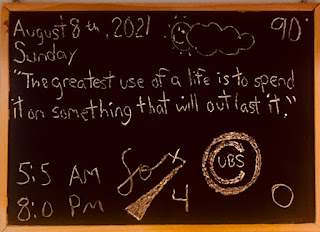 August 8th, 2021
90°
Sunday
"The greatest use of a life is to spend
it on something that will outlast it."
5:5 AM
8:0 PM
Sox
4
CUBS
0